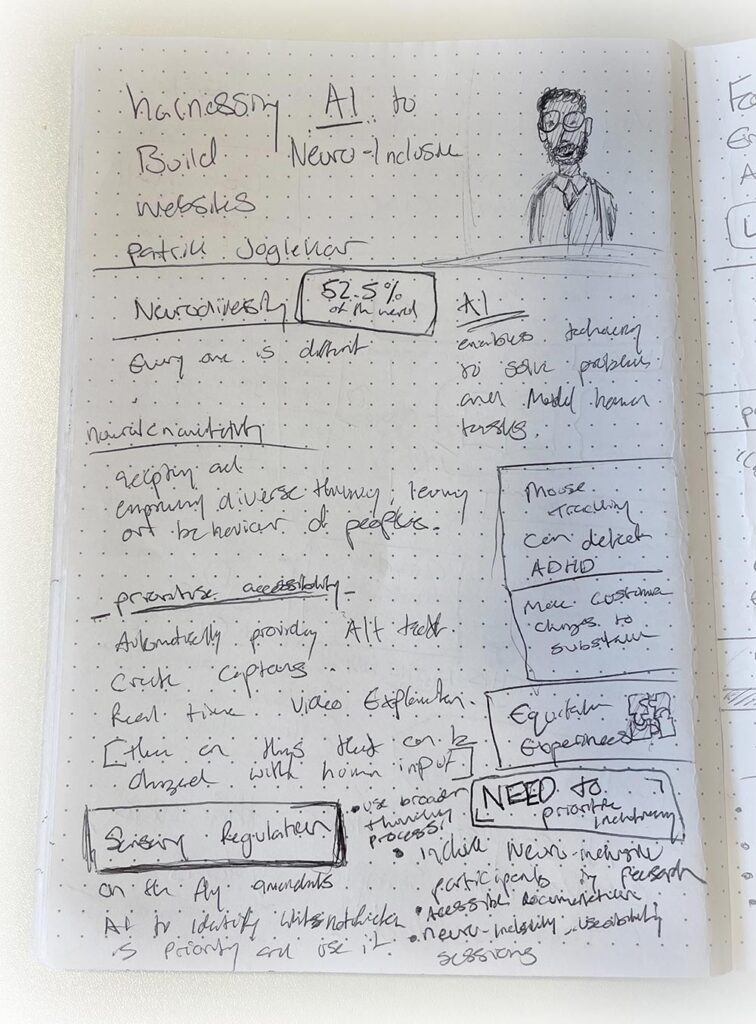 harnessing AI to
Build Neuro-Inclusive
websites
patrik Joglekar
Neurodiversity
52.5%
of the world
Every one is different
AI
enables technology
to solve problems
and Model human
tasks.
accepting and
diverse thinking, learning
behaviour of peoples.
prioritise accessibility
Automatically providing Alt text.
Create captions
Real time video Explanation.
[ on things that can be
changed with human input]
Mouse
tracking
Can detect
ADHD
Make customer
changes to
Equitable
Experiences
NEED to
prioritise
inclusivity
Sensory Regulation
on the fly
AI to identify
is priority and use it.
• use broader
thinking
process
• Include Neuro-inclusive
participants in Research
• Accessible Documentation
• Neuro-inclusivity useability
sessions